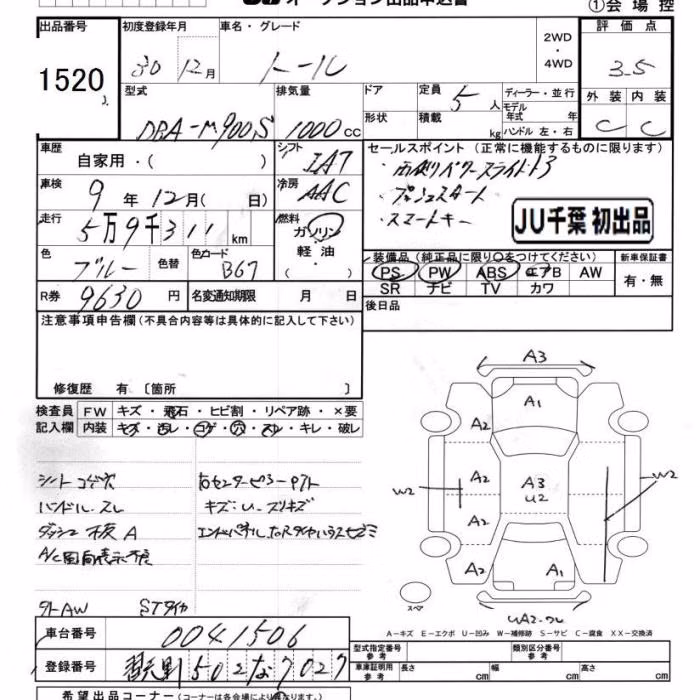 オークション出品申込書
①会場控
出品番号
1520
初度登録年月
30 12月
車名・グレード
トール
2WD
・
4WD
評価点
3.5
外装 内装
C C
型式
DBA-M900S
排気量
1000cc
ドア
形状
定員 5人
積載 kg
ディーラー・並行
モデル
年式 年
ハンドル 左・右
車歴
自家用・( )
シフト
IAT
セールスポイント(正常に機能するものに限ります)
・両側パワースライドドア
・プッシュスタート
・スマートキー
JU千葉 初出品
車検
9年12月( 日)
冷房
AAC
走行
5万9千311km
燃料
ガソリン
軽油
( )
色
ブルー
色替
色カード
B67
装備品(純正品に限り○をつけてください)
PS PW ABS エアB AW
SR ナビ TV カワ
新車保証書
有・無
R券
9630円
名変通知期限 月 日
後日品
注意事項申告欄(不具合内容等は具体的に記入して下さい)
修復歴 有〔箇所 〕
検査員 FW キズ・飛石・ヒビ割・リペア跡・×要
記入欄 内装 キズ・汚レ・コゲ・穴・スレ・キレ・破レ
シートコゲ穴
ハンドルスレ
ダッシュ
A/C
外AW STタイヤ
右センターピラー
キズ:U-スリキズ
エンドパネル
A3
A1
A2
A2
A3
U2
A2
W2
W2
A2
A2
A1
UA2
スペア
A-キズ E-エクボ U-凹み W-補修跡 S-サビ C-腐食 XX-交換済
車台番号
0041506
登録番号
習志野502な7027
型式指定番号
参考
類別区分番号
参考
車庫証明用
参考
長さ cm 幅 cm 高さ cm
希望出品コーナー(コーナーは各会場により異なります。)